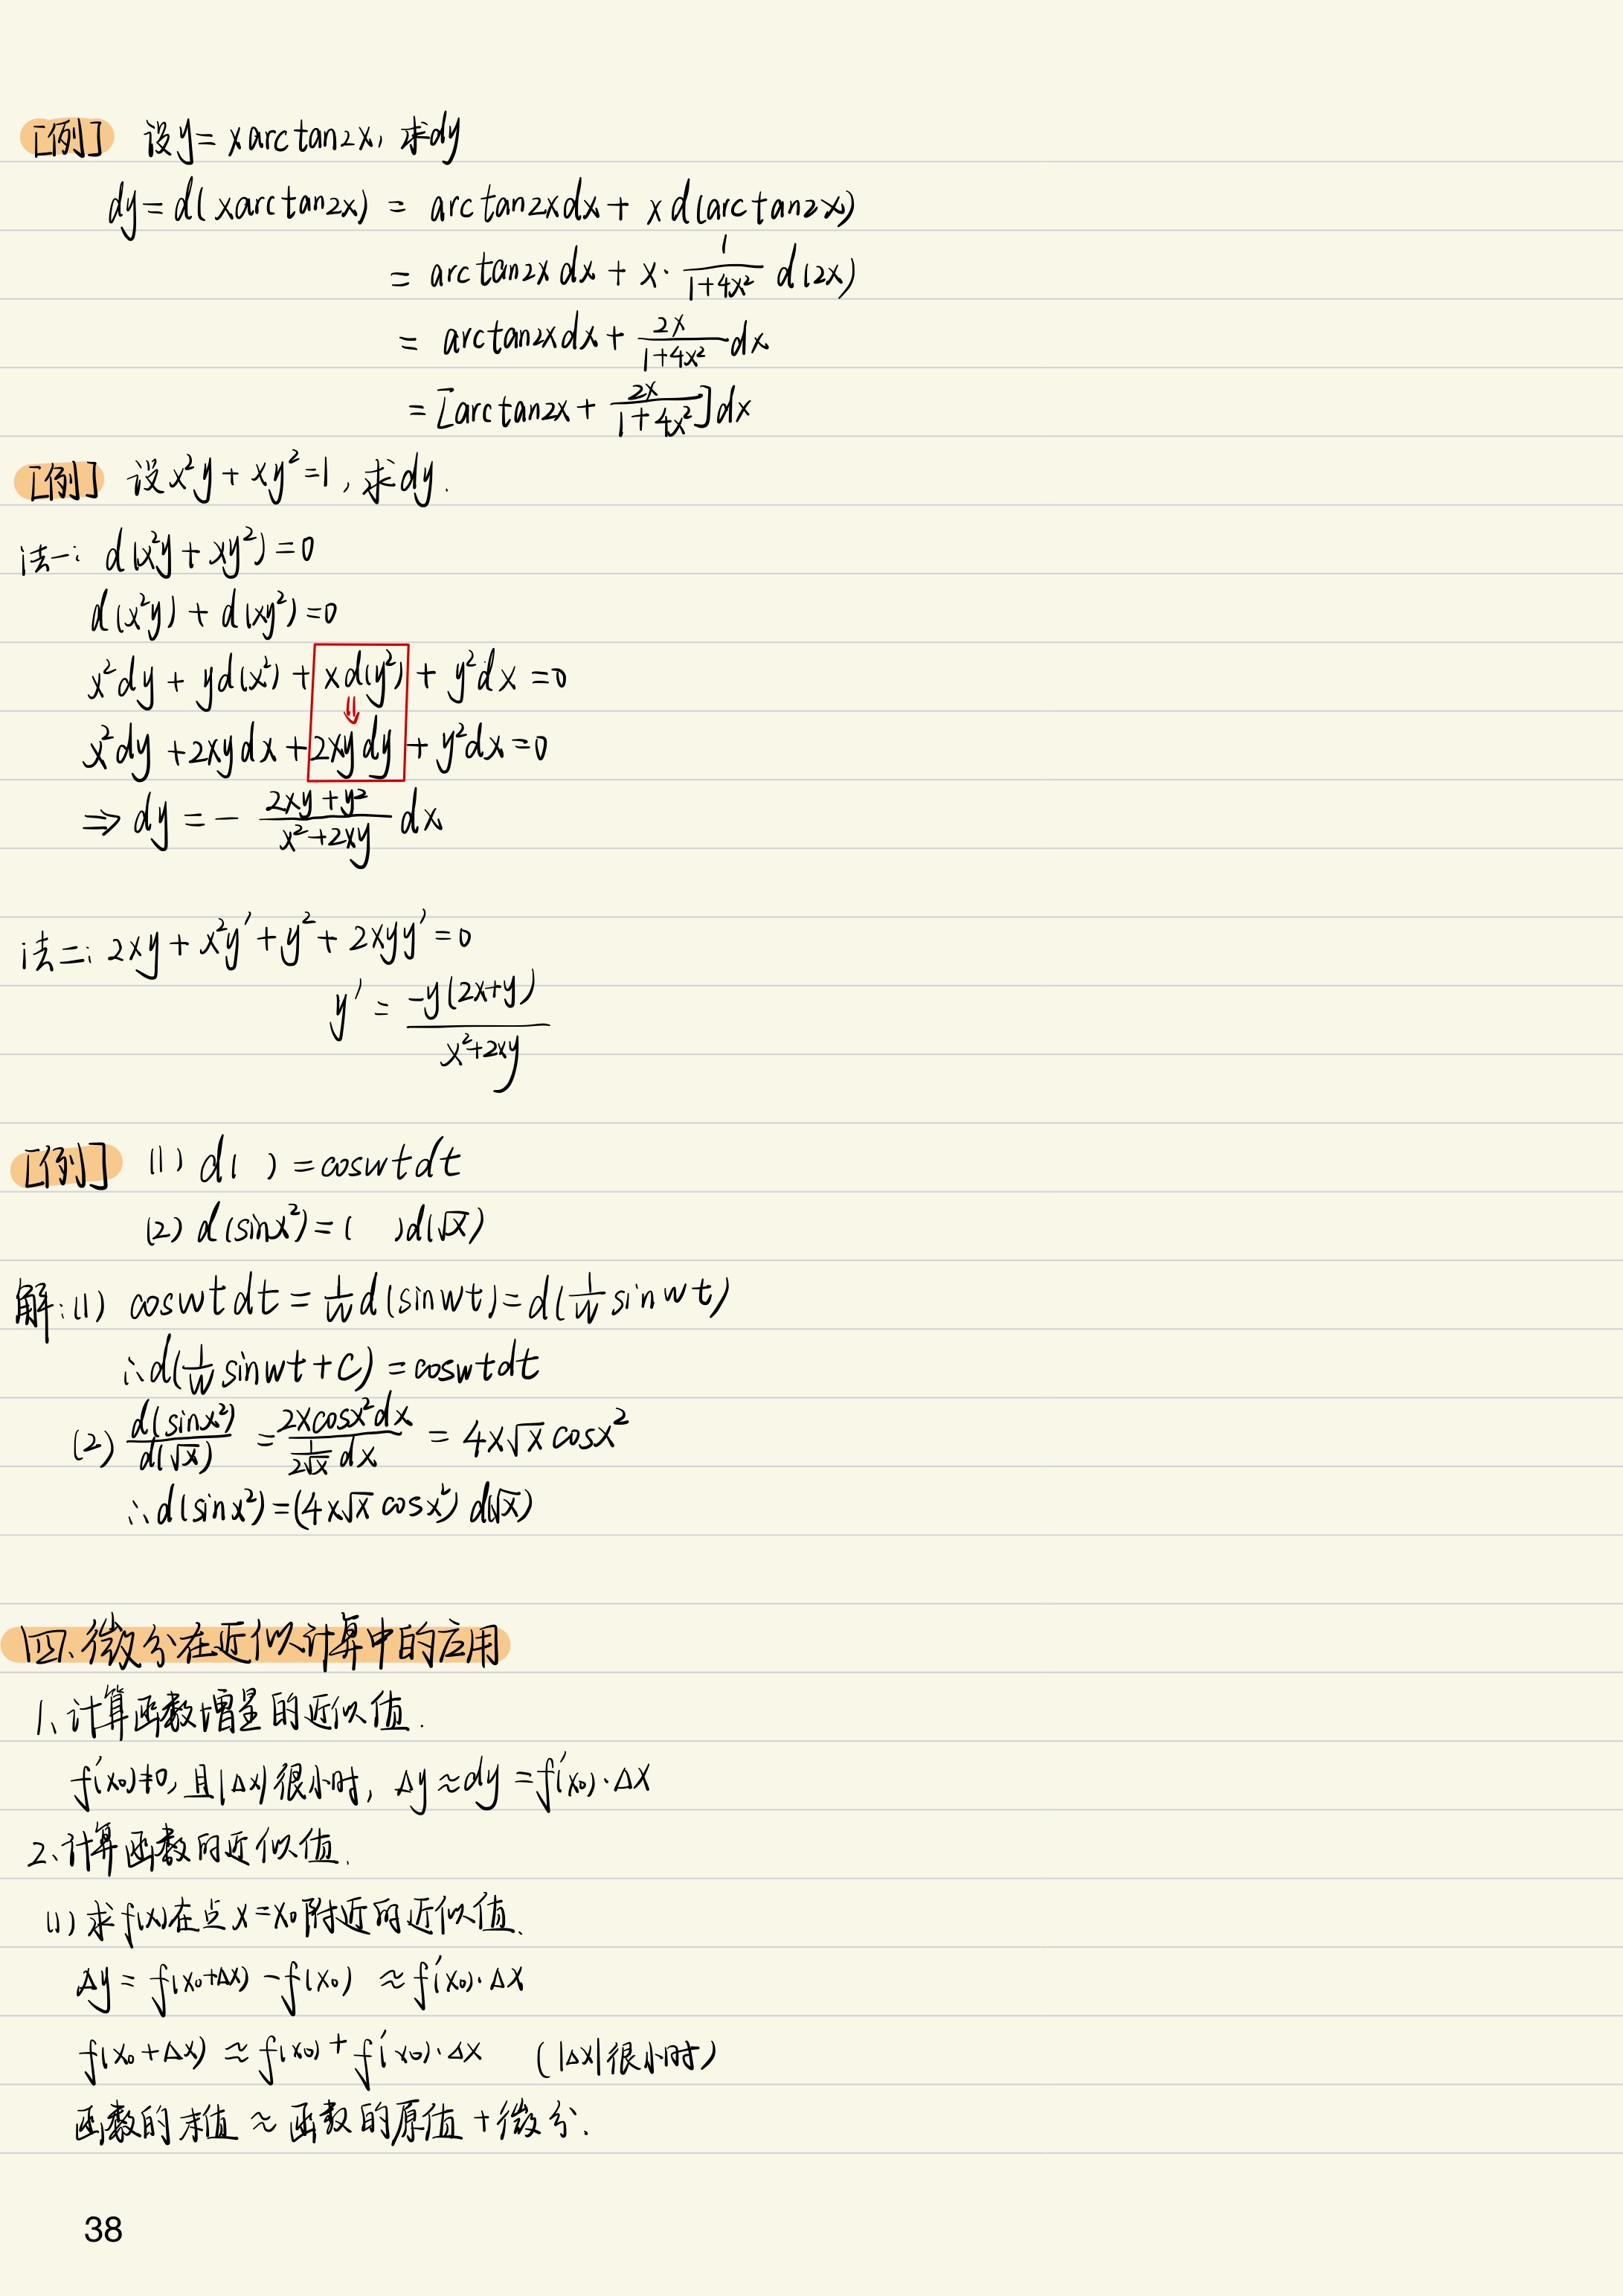 [例] 设y=xarctan2x, 求dy
dy=d(xarctan2x) = arctan2xdx+xd(arctan2x)
= arctan2xdx+x·\frac{1}{1+4x²}d(2x)
= arctan2xdx+\frac{2x}{1+4x²}dx
=[arctan2x+\frac{2x}{1+4x²}]dx
[例] 设x²y+xy²=1, 求dy.
法一: d(x²y+xy²)=0
d(x²y)+d(xy²)=0
x²dy+yd(x²)+xd(y²)+y²dx=0
⇓
x²dy+2xydx+2xydy+y²dx=0
⇒dy=-\frac{2xy+y²}{x²+2xy}dx
法二: 2xy+x²y'+y²+2xyy'=0
y'=\frac{-y(2x+y)}{x²+2xy}
[例] (1) d( )=coswtdt
(2) d(sinx²)=( )d(√x)
解:(1) coswtdt=\frac{1}{w}d(sinwt)=d(\frac{1}{w}sinwt)
∴d(\frac{1}{w}sinwt+C)=coswtdt
(2) \frac{d(sinx²)}{d(√x)}=\frac{2xcosx²dx}{\frac{1}{2√x}dx}=4x√xcosx²
∴d(sinx²)=(4x√xcosx²)d(√x)
四、微分在近似计算中的应用
1、计算函数增量的近似值.
f'(x₀)≠0, 且|Δx|很小时, Δy≈dy=f'(x₀)·Δx
2、计算函数的近似值.
(1) 求f(x)在点x=x₀附近的近似值.
Δy=f(x₀+Δx)-f(x₀)≈f'(x₀)·Δx
f(x₀+Δx)≈f(x₀)+f'(x₀)·Δx (|Δx|很小时)
函数的末值≈函数的原值+微分.
38